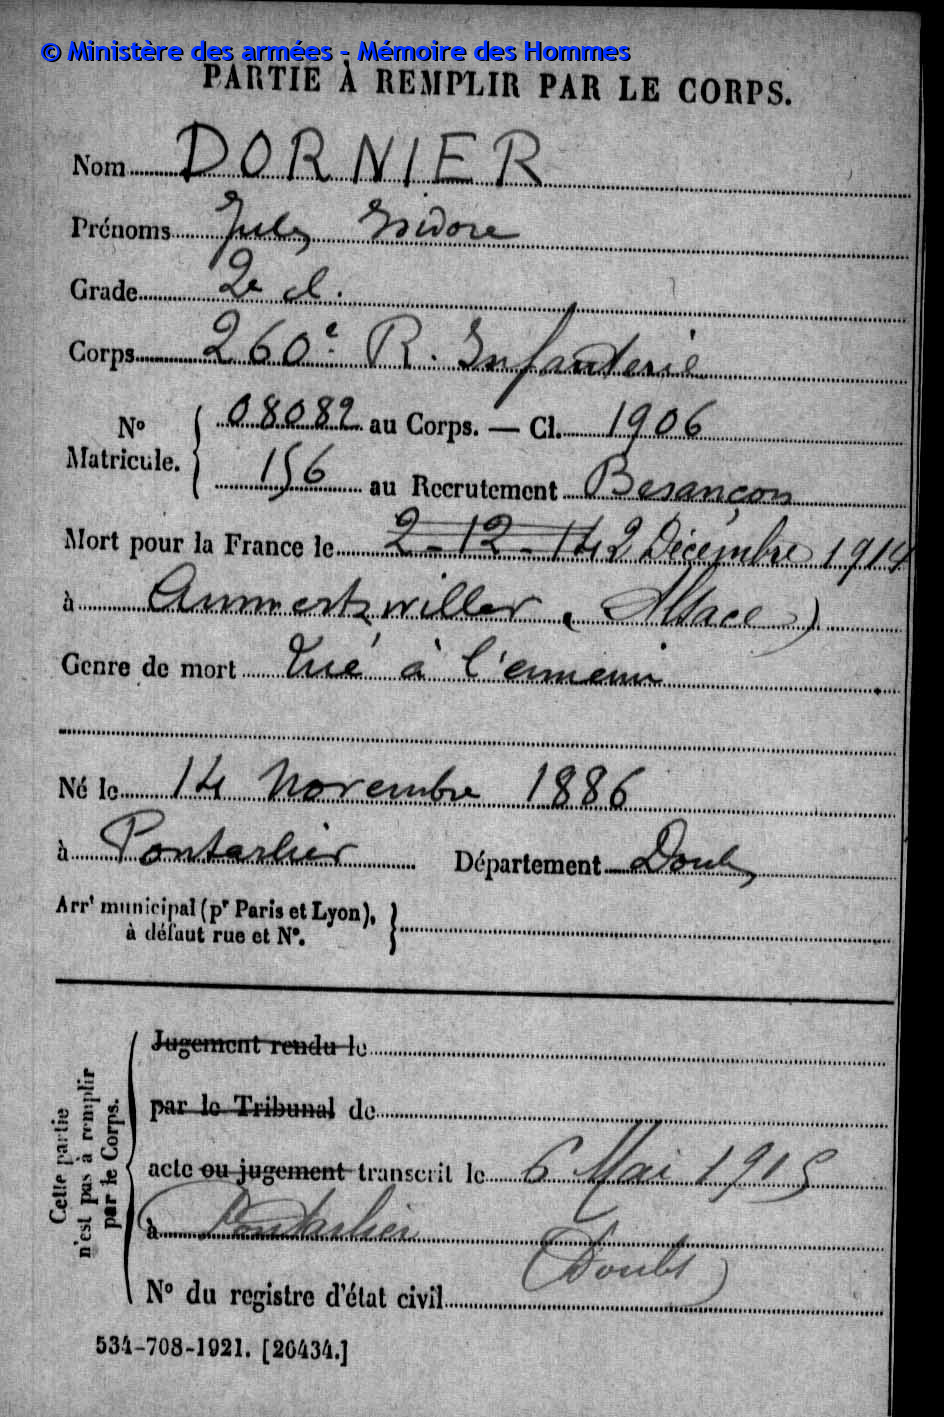 © Ministère des armées - Mémoire des Hommes
PARTIE À REMPLIR PAR LE CORPS.
Nom DORNIER
Prénoms Jules Isidore
Grade 2e cl.
Corps 260e R. Infanterie
No Matricule. { 08082 au Corps. — Cl. 1906
156 au Recrutement Besançon
Mort pour la France le 2-12-14 2 Décembre 1914
à Ammertzwiller (Alsace)
Genre de mort Tué à l'ennemi
Né le 14 Novembre 1886
à Pontarlier Département Doubs
Arrt municipal (pr Paris et Lyon), à défaut rue et No. }
Cette partie n'est pas à remplir par le Corps. {
Jugement rendu le
par le Tribunal de
acte ou jugement transcrit le 6 Mai 1915
à Pontarlier (Doubs)
No du registre d'état civil
534-708-1921. [26434.]